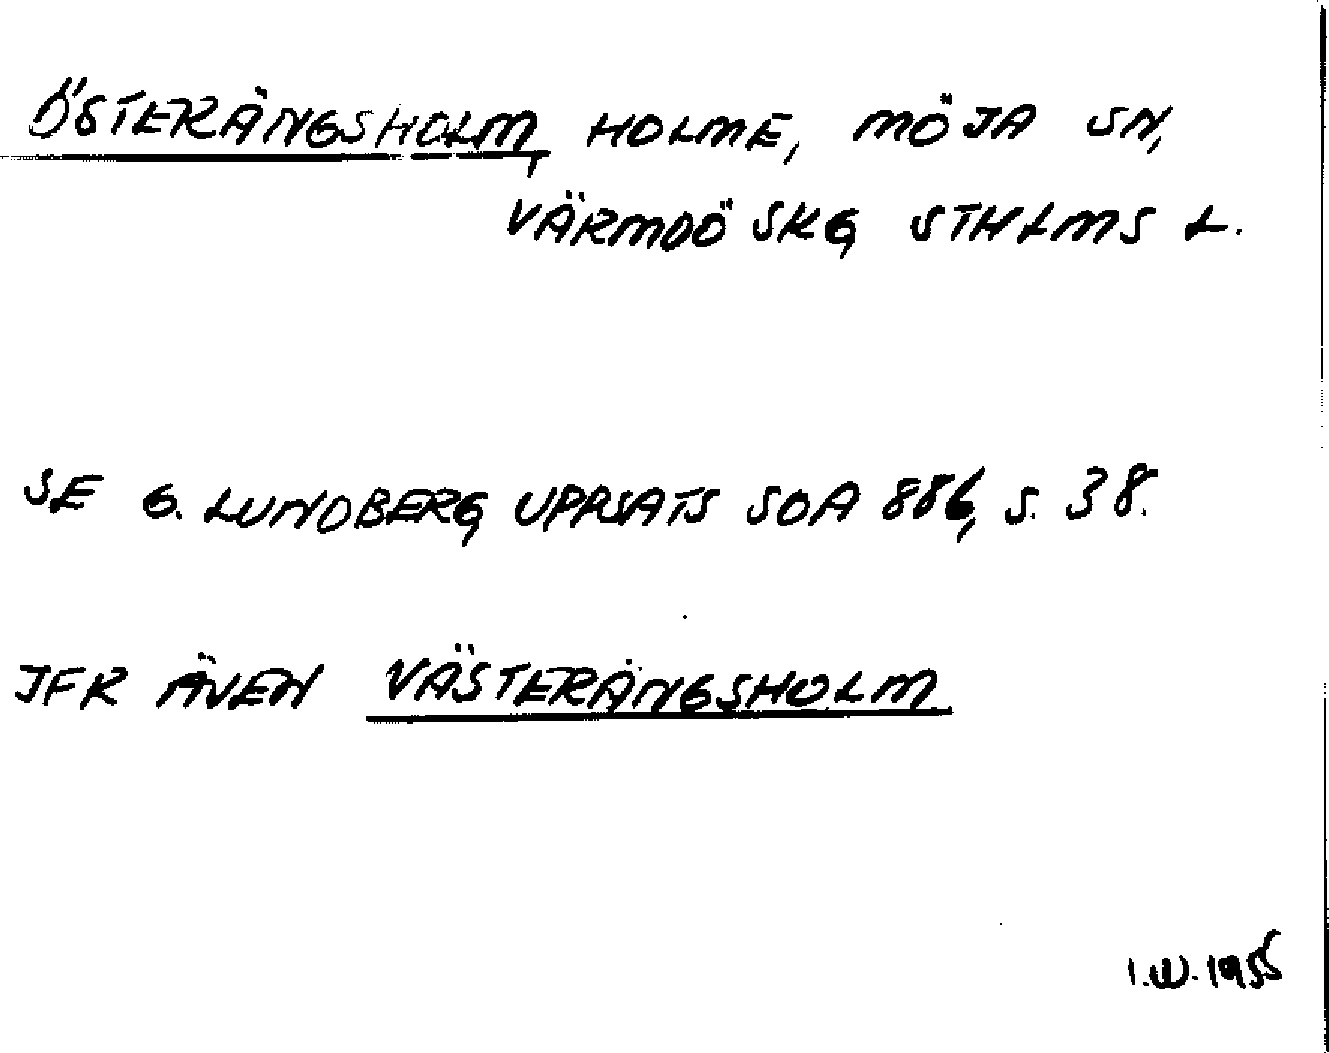 ÖSTERÄNGSHOLM, HOLME, MÖJA SN,
VÄRMDÖ SKG, STHLMS L.
SE G. LUNDBERG, UPPSATS SOA 886, S. 38.
JFR ÄVEN VÄSTERÄNGSHOLM
I.W. 1955